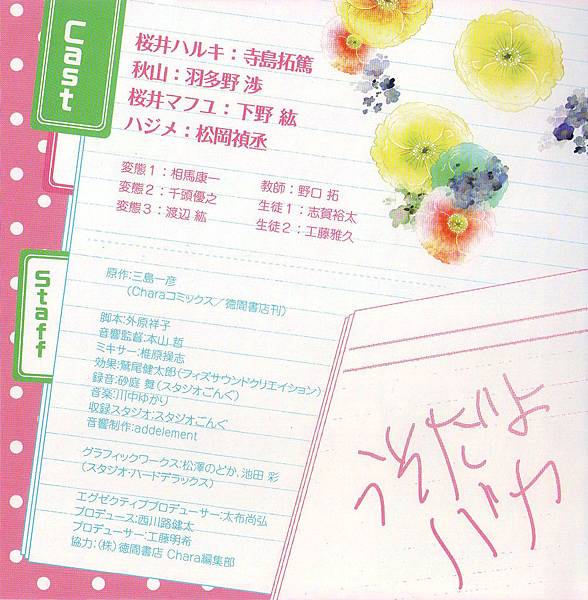 Cast
桜井ハルキ：寺島拓篤
秋山：羽多野 渉
桜井マフユ：下野 紘
ハジメ：松岡禎丞
変態1：相馬康一
変態2：千頭優之
変態3：渡辺 紘
教師：野口 拓
生徒1：志賀裕太
生徒2：工藤雅久
Staff
原作:三島一彦
（Charaコミックス／徳間書店刊）
脚本:外原祥子
音響監督:本山 哲
ミキサー:椎原操志
効果:鷲尾健太郎（フィズサウンドクリエイション）
録音:砂庭 舞（スタジオごんぐ）
音楽:川中ゆかり
収録スタジオ:スタジオごんぐ
音響制作:addelement
グラフィックワークス:松澤のどか、池田 彩
（スタジオ・ハードデラックス）
エグゼクティブプロデューサー:太布尚弘
プロデュース:西川路健太
プロデューサー:工藤明希
協力:（株）徳間書店 Chara編集部
うそだよ
バカ